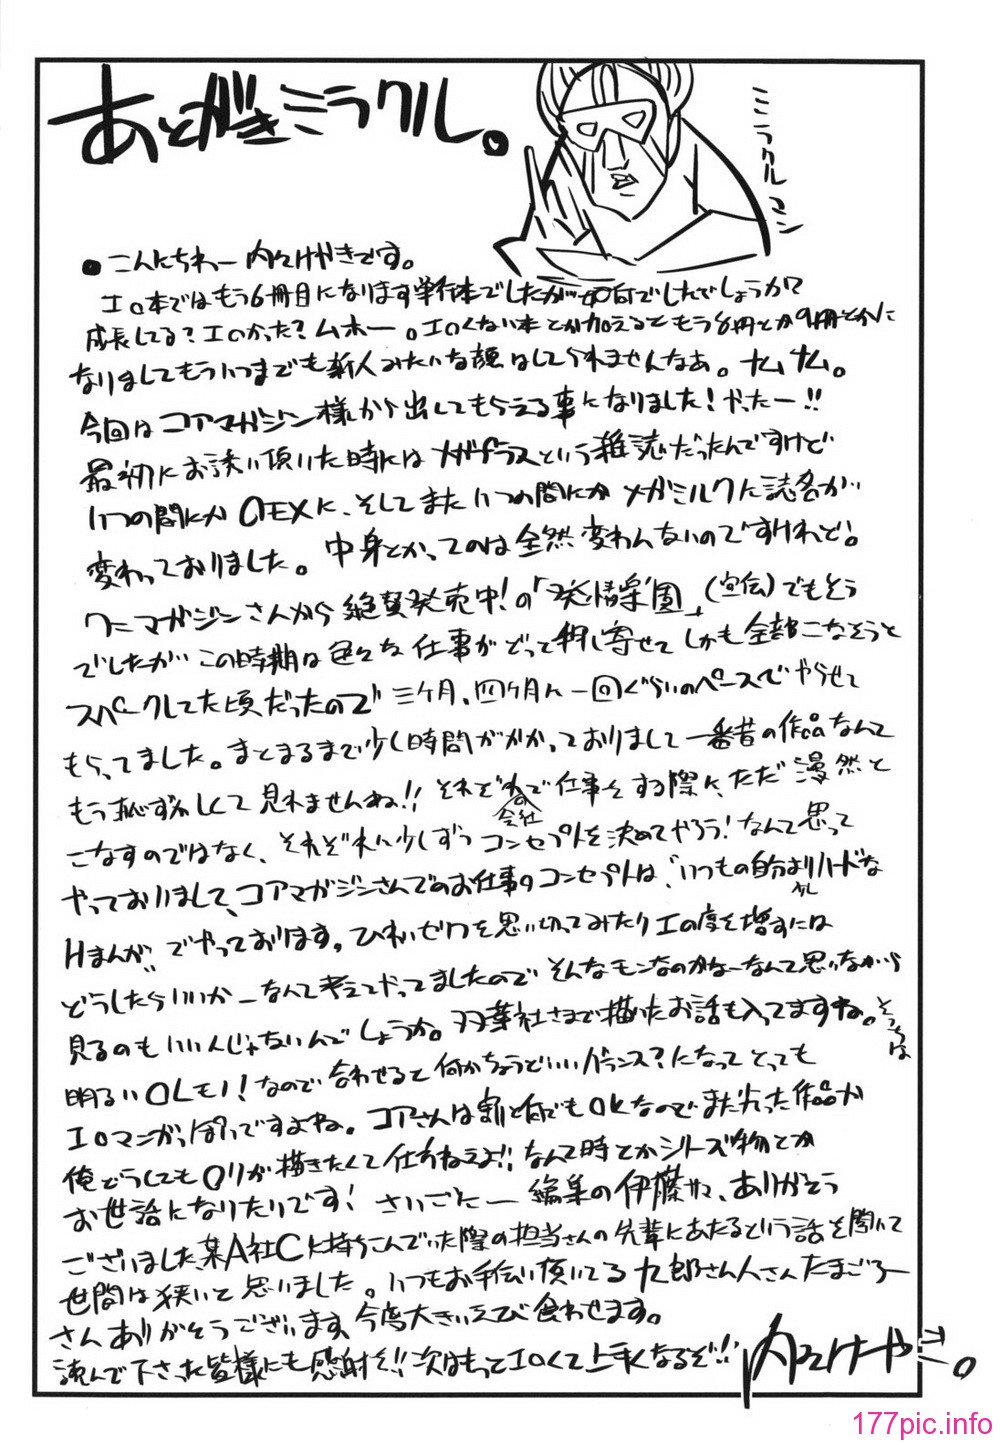 あとがきミラクル。
ミラクルマン
●こんにちわー 内々けやきです。
エロ本ではもう6冊目になります単行本でしたが如何でしたでしょうか?
成長してる?エロかった?ムホー。エロくない本とか加えるともう8冊とか9冊とかに
なりましてもういつまでも新人みたいな顔はしてられませんなあ。ナムナム。
今回はコアマガジン様から出してもらえる事になりました!やったー!!
最初にお誘い頂いた時にはメガプラスという雑誌だったんですけど
いつの間にかOEXに、そしてまたいつの間にかメガミルクに誌名が
変わっておりました。中身とかってのは全然変わんないのですけれど。
ワニマガジンさんから絶賛発売中!の「発情楽園」(宣伝)でもそう
でしたがこの時期は色々な仕事がどっと押し寄せてしかも全部こなそうと
スパークしてた頃だったので三ヶ月、四ヶ月に一回ぐらいのペースでやらせて
もらってました。まとまるまで少し時間がかかっておりまして一番昔の作品なんて
もう恥ずかしくて見れませんね!!それぞれの会社で仕事をする際に、ただ漫然と
こなすのではなく、それぞれに少しずつコンセプトを決めてやろう!なんて思って
やっておりまして、コアマガジンさんでのお仕事のコンセプトは、"いつもの自分より少しハードな
Hまんが"でやっております。ひわいゼリフを思い切ってみたりエロ度を増すには
どうしたらいいかーなんて考えてやってましたのでそんなモンなのかなーなんて思いながら
見るのもいいんじゃないんでしょうか。双葉社さまで描いたお話も入ってますね。そっちは
明るいOLモノ!なので合わせると何かちょうどいいバランス?になってとっても
エロマンガっぽいですよね。コアさんは割と何でもOKなのでまた尖った作品か
俺どうしてもロリが描きたくて仕方ねえよ!!なんて時とかシリーズ物とか
お世話になりたいです!さいごにー編集の伊藤サマ、ありがとう
ございました某A社Cに持ちこんでいた際の担当さんの先輩にあたるという話を聞いて
世間は狭いと思いました。いつもお手伝い頂いてる九郎さん人さんたまごろー
さんありがとうございます、今度大きいえび食わせます。
読んで下さった皆様にも感謝を!!次はもってエロくて上手くなるぞ!!
内々けやき。
177pic.info